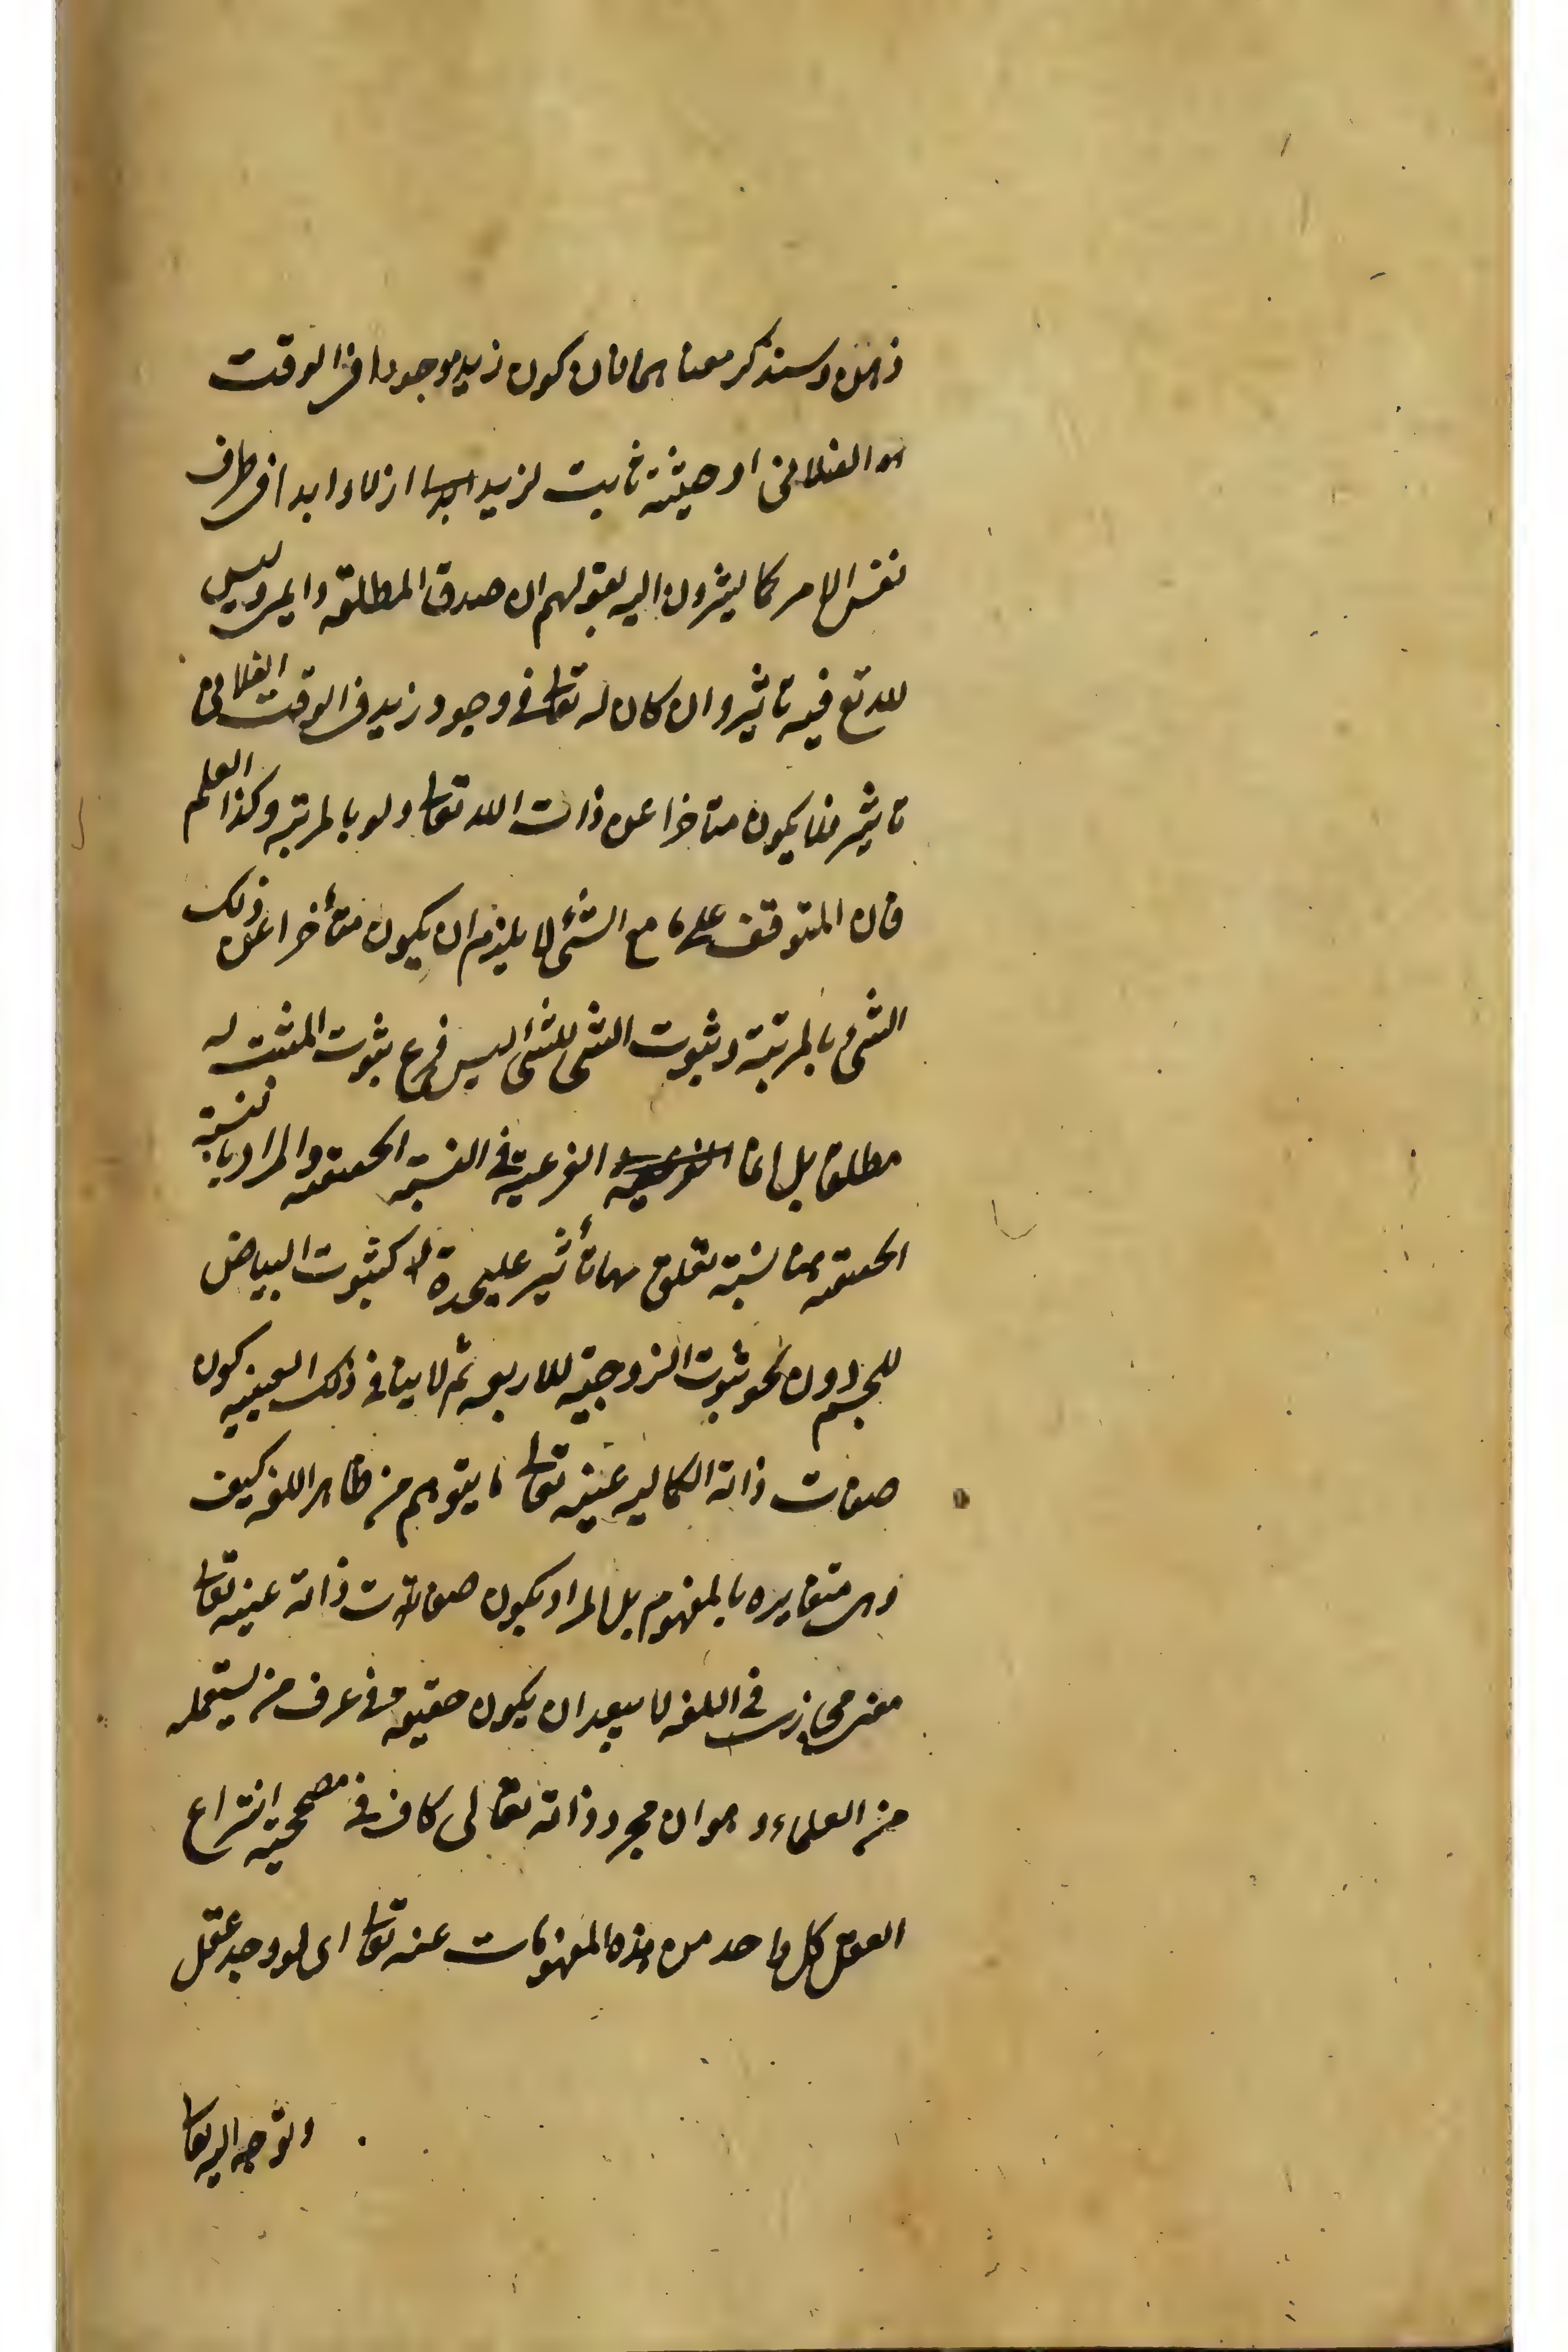 ذهن وسنذكر معناهما فان كون زيد موجودا فى الوقت
الفلانى او حيثية ثابت لزيد ازلا وابدا فى ظرف
نفس الامر كما يشيرون اليه بقولهم ان صدق المطلقة دايمى وليس
لله تع فيه تاثير وان كان له تعالى فى وجود زيد فى الوقت الفلانى
تاثير فلا يكون متاخرا عن ذات الله تعالى ولو بالمرتبه وكذا العلم
فان المتوقف على ما مع الشئ لا يلزم ان يكون متأخرا عن ذلك
الشئ بالمرتبة وثبوت الشئ للشئ ليس فرع ثبوت المثبت له
مطلقا بل انما الفرعية فى النسبة الحقيقيه والمراد بالنسبة
الحقيقيه هنا نسبة تعلق بها تأثير عليحدة كثبوت البياض
للجسم دون نحو ثبوت الزوجية للاربعه ثم لا ينافى ذلك العينيه كون
صفات ذاته الكماليه عينه تعالى ما يتوهم من ظاهر اللفظ كيف
وهى متغايره بالمفهوم بل المراد بكون صفات ذاته عينه تعالى
معنى مجازى فى اللغه لا يبعد ان يكون حقيقه فى عرف من يستعمله
من العلماء وهو ان مجرد ذاته تعالى كاف فى مصححية انتزاع
العقل كل واحد من هذه المفهومات عنه تعالى اى لو وجد عقل
وتوجه اليه تعالى